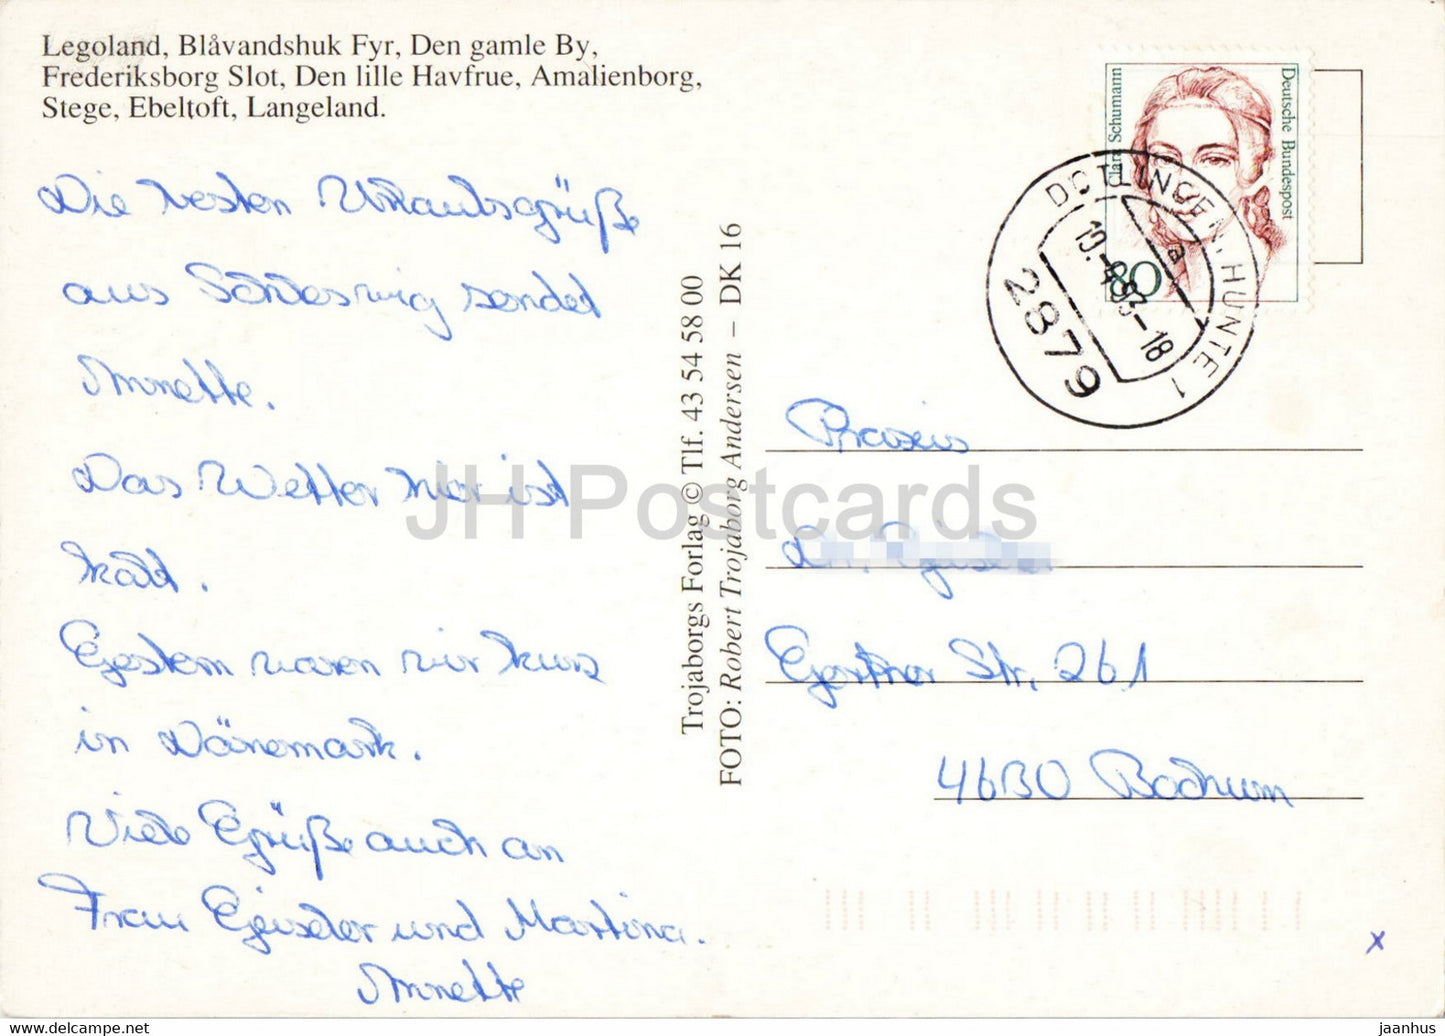 Legoland, Blåvandshuk Fyr, Den gamle By,
Frederiksborg Slot, Den lille Havfrue, Amalienborg,
Stege, Ebeltoft, Langeland.
Die besten Urlaubsgrüße
aus Schleswig sendet
Annette.
Das Wetter hier ist
kalt.
Gestern waren wir kurz
in Dänemark.
Viele Grüße auch an
Frau Geiseler und Martina.
Annette
Trojaborgs Forlag © Tlf. 43 54 58 00
FOTO: Robert Trojaborg Andersen – DK 16
Clara Schumann
Deutsche Bundespost
80
DÖTLINGEN, HUNTE 1
a
19.-4.93-18
2879
Praxis
Str. 261
4630 Bochum
x
JH Postcards
jaanhus
https://www.delcampe.net